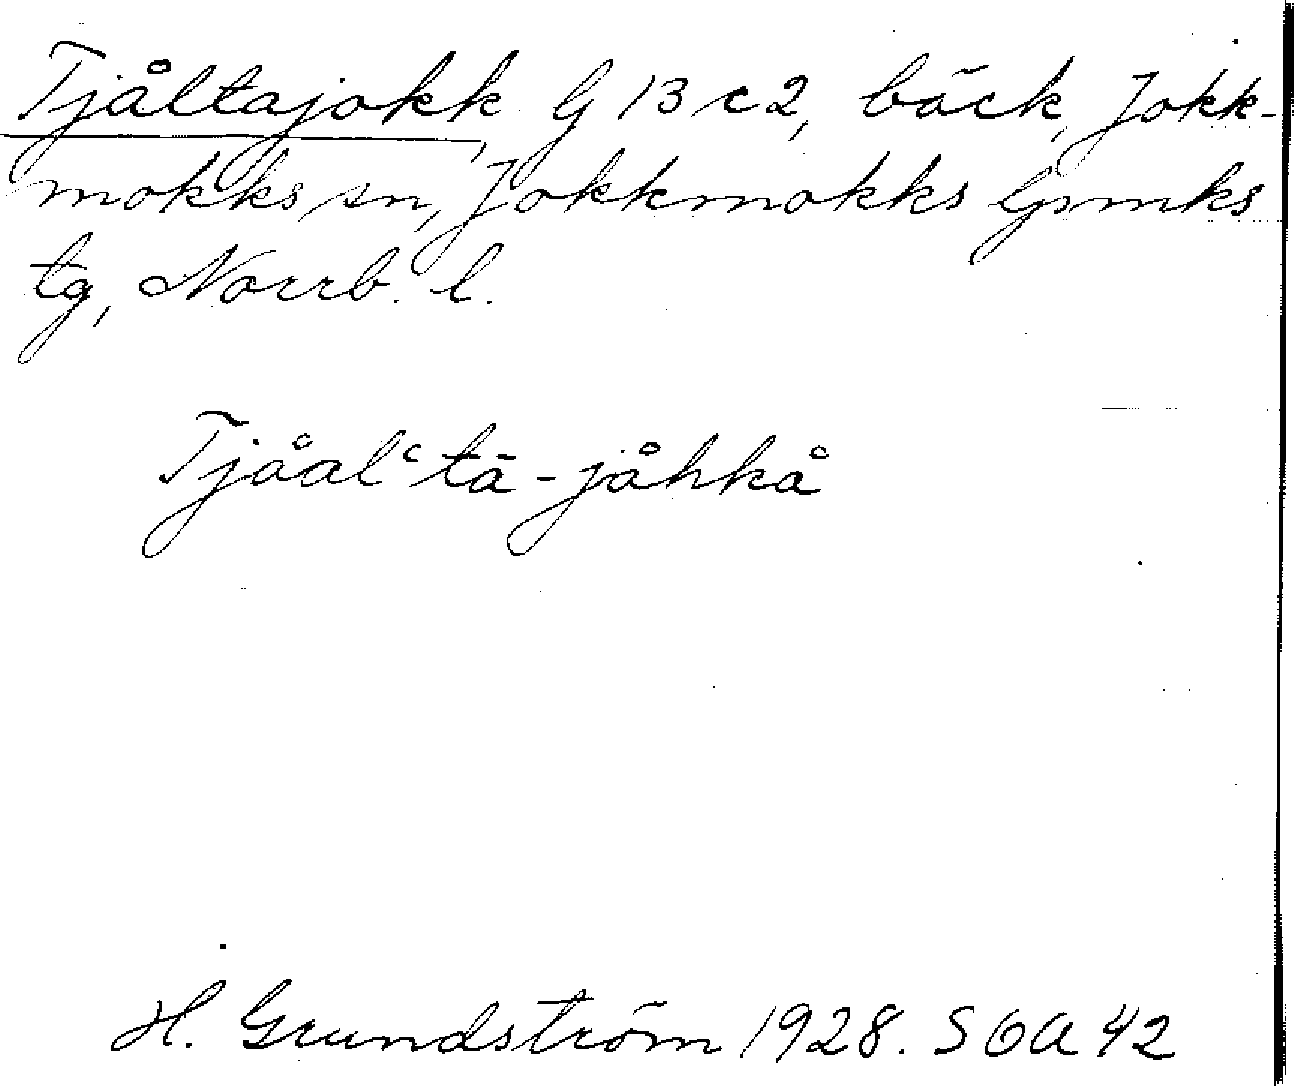 Tjåltajokk, G 13 c 2, bäck, Jokk-
mokks sn, Jokkmokks lpmks
tg, Norrb. l.
Tjåalʿtā-jåhkå
H. Grundström 1928. SOA 42